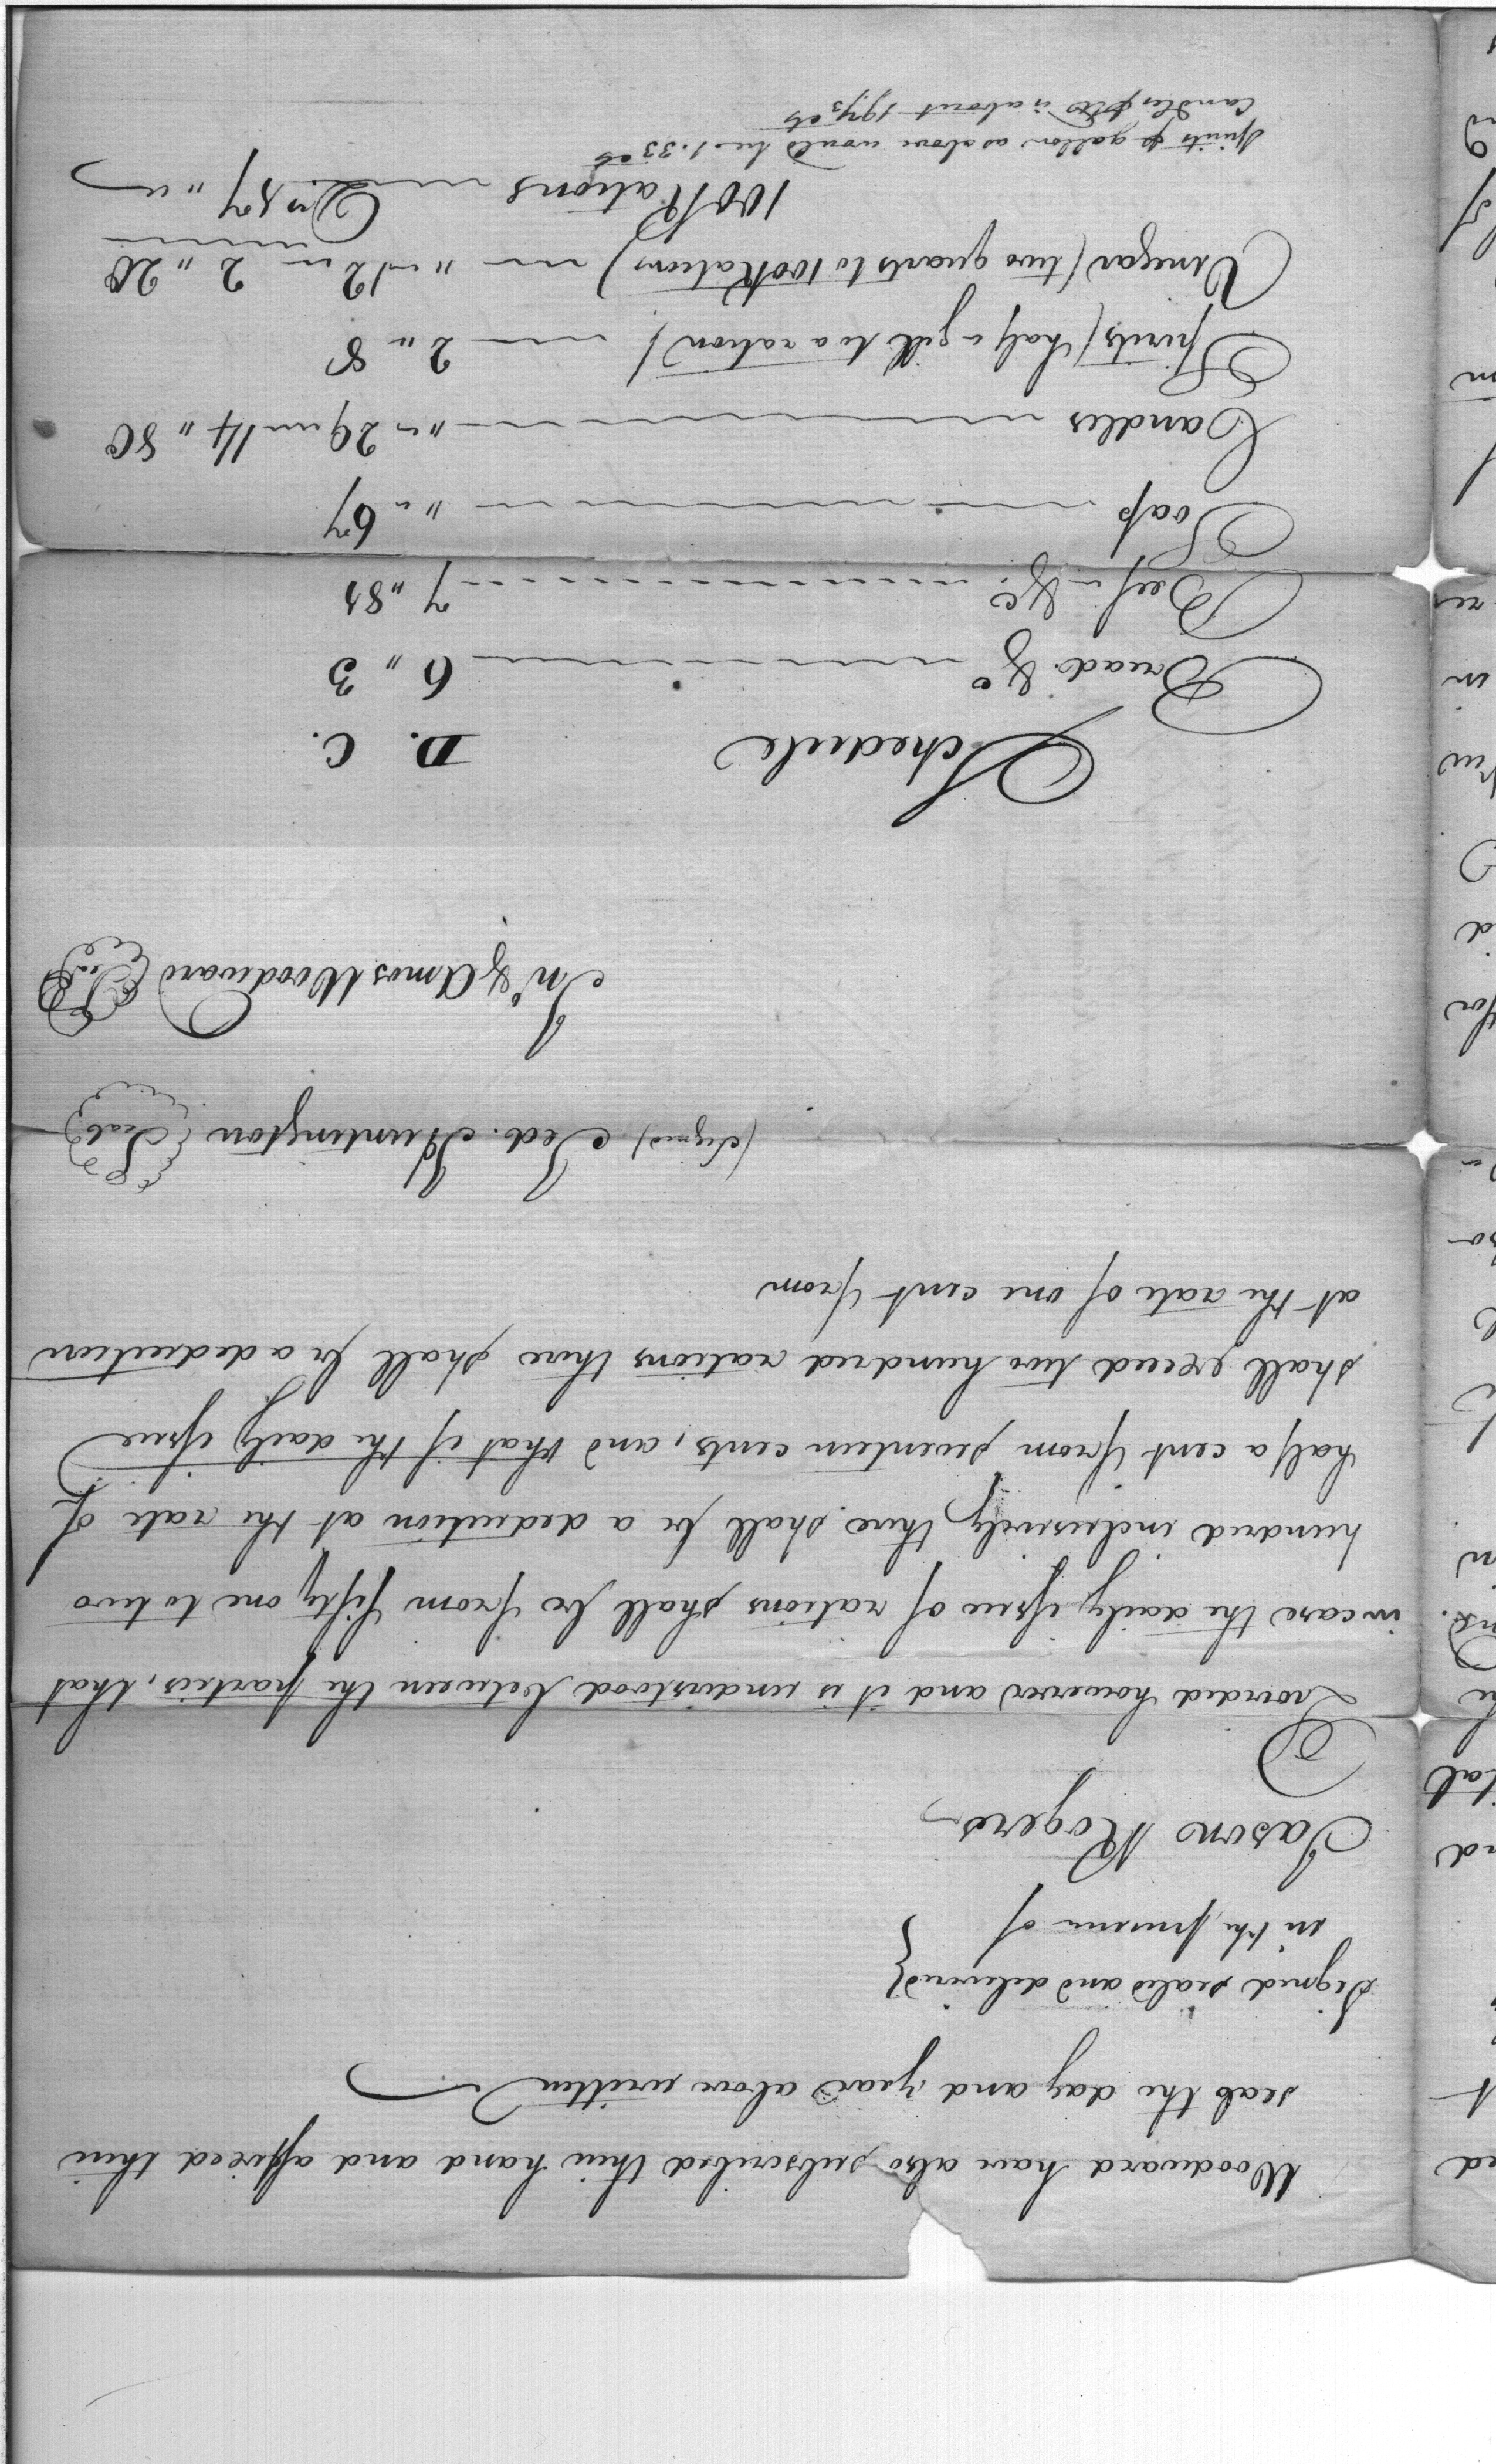 Woodward have also subscribed their hand and affixed their
seal the day and year above written
Signed sealed and delivered }
in the presence of }
Jason Rogers
Provided however and it is understood between the parties, that
in case the daily issue of rations shall be from fifty one to two
hundred inclusively there shall be a deduction at the rate of
half a cent from seventeen cents, and that if the daily issue
shall exceed two hundred rations there shall be a deduction
at the rate of one cent from
(Signed) Jed. Huntington Seal
Jno. & Amos Woodward Seal
Schedule D. C.
Bread &c 6 " 3
Beef &c 7 " 81
Soap " " 67
Candles " " 29 14 " 80
Spirits (half a gill to a ration) 2 " 8
Vinegar (two quarts to 100 Rations) " 12 2 " 20
100 Rations Drs 17 " "
Spirits p gallon as above would be 1.33 cts
Candles is about 19 1/3 cts